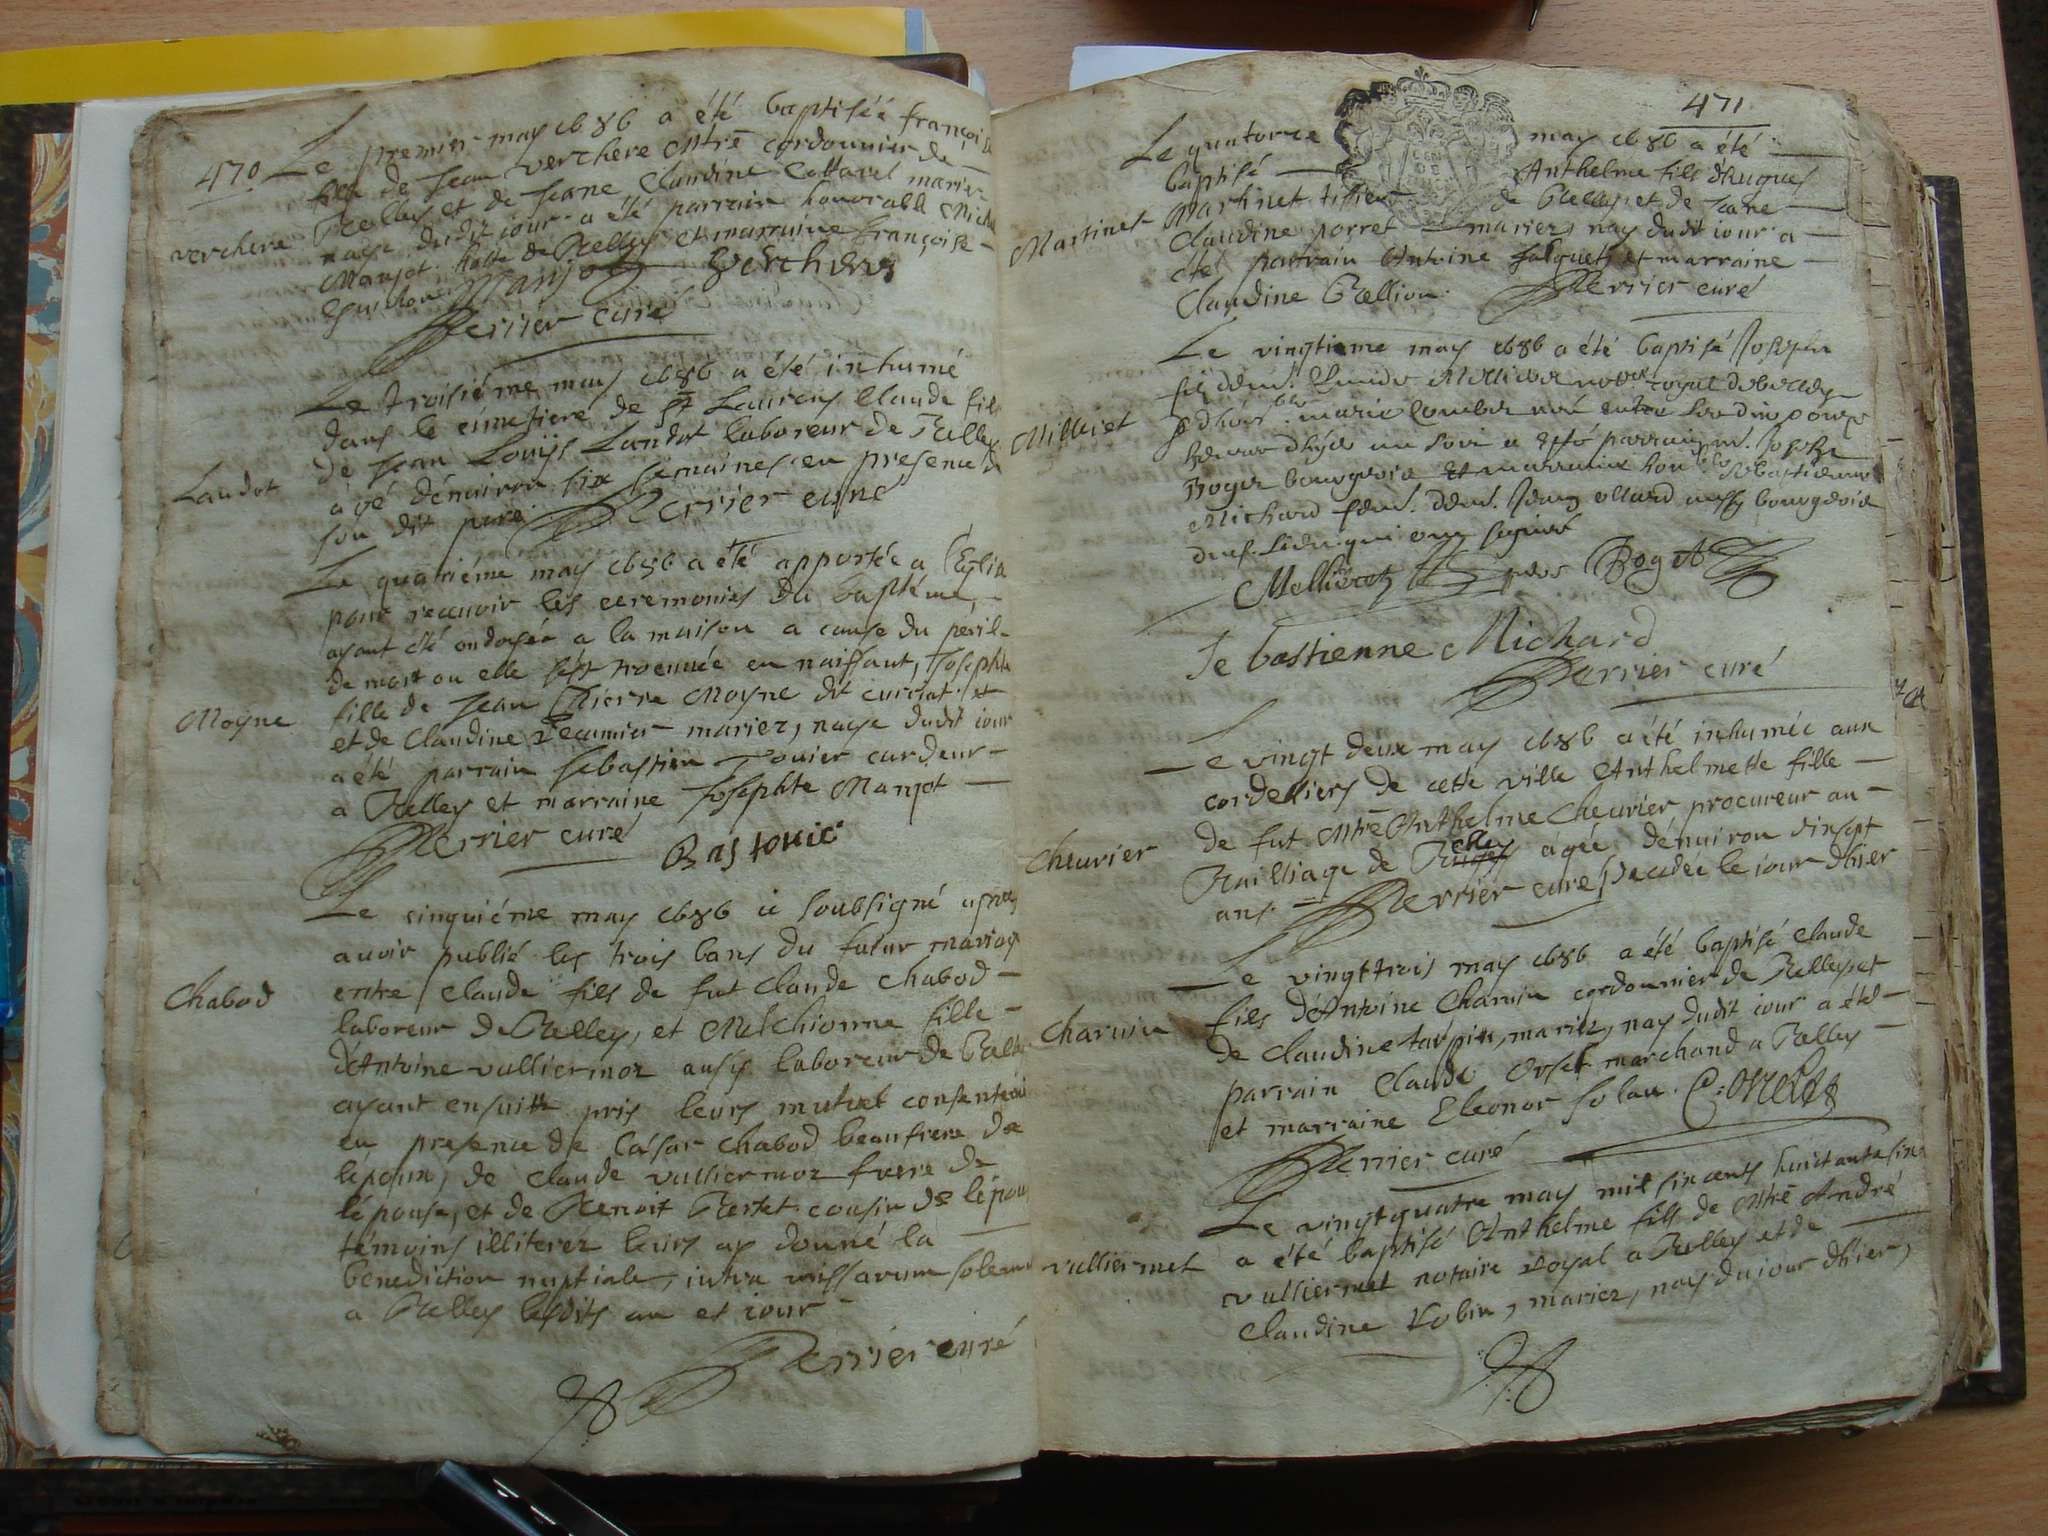 470
Le premier may 1686 a été baptiséé françoi
fille de Jean verchere Mtre cordounier de
verchere
Belley et de Jeane Claudine Cottarel mariez
naye dudit iour a été parrain honorable Mich
Manjot hoste de Belley et marraine françoise
Manjot Verchere
Perrier curé
Le troisiéme may 1686 a été inhumé
dans le cimetiere de St Laurens Claude fils
de Jean Louijs Landot laboreur de Belley
Landot
àgé dénuiron six semaines en presence de
son dit pere Perrier curé
Le quatriéme may 1686 a été apportée a l'Eglise
pour receuoir les ceremonies du baptéme,
ayant été ondoyée a la maison a cause du peril
de mort ou elle s'est trouuée en naissant, Josephte
fille de Jean Pierre Moyne dit curtat et
Moyne
et de Claudine Recamier mariez, naye dudit iour
a été parrain sebastien Touier cardeur
a Belley et marraine Josephte Manjot
Perrier curé Bastouie
Le cinquiéme may 1686 ie soubsigné apres
auoir publié les trois bans du futur mariage
entre Claude fils de fut Claude Chabod
Chabod
laboreur de Belley, et Melchionne fille
d'Antoine vulliermoz aussy laboreur de Belle
ayant ensuitte pris leurs mutuel consentem
en presence de Cæsar Chabod beaufrere de
lépoux, de Claude vulliermoz frere de
lépouse, et de Benoit Bertet cousin de lépou
témoins illiterez leurs ay donné la
benediction nuptiale, intra missarum solemn
a Belley lesdits an et iour
Perrier curé
471
Le quatorze may 1686 a été
baptisé Anthelme fils d'hugues
Martinet
Martinet tissier de Belley et de Jeane
Claudine porret mariez, nay dudit iour a
été parrain Antoine falquet et marraine
Claudine Bellion Perrier curé
Le vingtieme may 1686 a été baptisé Joseph
Milliet
marie
parrain Joseph
Roger bourgeois et marraine sebastienne
Michard bourgeois
Roget
Sebastienne Michard
Perrier curé
Le vingt deux may 1686 a été inhumée aux
cordelliers de cette ville Anthelmette fille
de fut Mtre Anthelme Cheurier procureur au
Cheurier
Bailliage de Belley àgée dénuiron dinsept
ans Perrier curé Decedée le iour d'hier
Le vingttrois may 1686 a été baptisé Claude
fils d'Antoine Charuin cordounier de Belley et
Charuin
de Claudine tarpin, mariez, nay dudit iour a été
parrain Claude Orset marchand a Belley
et marraine Eleonor solau. C. Orset
Perrier curé
Le vingtquatre may mil sixcents huictantesix
a été baptisé Anthelme fils de Mtre André
vulliermet
vulliermet notaire royal a Belley et de
Claudine Robin, mariez, nay du iour d'hier,